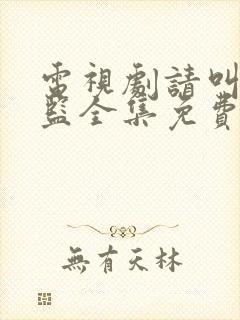 電視劇請叫
監全集免費
無有天林